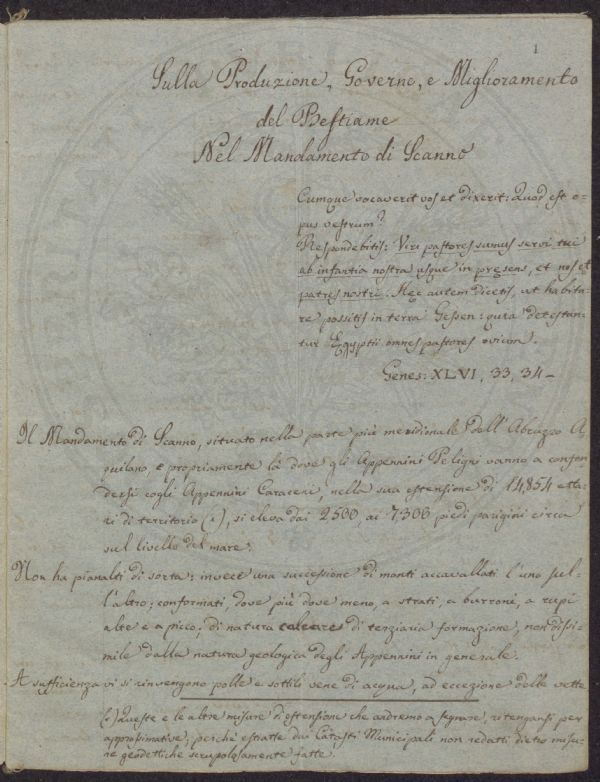 1
Sulla Produzione, Governo, e Miglioramento
del Bestiame
Nel Mandamento di Scanno
Cumque vocaverit vos et dixerit: Quod est o-
pus vestrum?
Respondebitis: Viri pastores sumus servi tui
ab infantia nostra usque in presens, et nos et
patres nostri. Hec autem dicetis, ut habita-
re possitis in terra Gessen: quia detestan-
tur Egyptii omnes pastores ovium.
Genes: XLVI, 33, 34 –
Il Mandamento di Scanno, situato nella parte più meridionale dell'Abruzzo A-
quilano, e propriamente là dove gli Appennini Peligni vanno a confon-
dersi cogli Appennini Caraceni, nella sua estensione di 14,854 etta-
ri di territorio (1), si eleva dai 2500, ai 7,300 piedi parigini circa
sul livello del mare.
Non ha pianalti di sorta; invece una successione di monti accavallati l'uno sul-
l'altro; conformati, dove più dove meno, a strati, a burroni, a rupi
alte e a picco; di natura calcare di terziaria formazione, non dissi-
mile dalla natura geologica degli Appennini in generale.
A sufficienza vi si rinvengono polle e sottili vene di acqua, ad eccezione delle vette
(1) Queste e le altre misure di estensione che andremo a segnare, ritengansi per
approssimative; perchè estratte dai Catasti Municipali non redatti dietro misu-
re geodetiche scrupolosamente fatte.